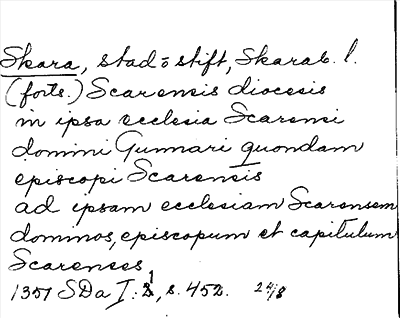 Skara, stad o stift, Skarab. l.
(forts.) Scarensis diocesis
in ipsa ecclesia Scarensi
domini Gunnari quondam
episcopi Scarensis
ad ipsam ecclesiam Scarensem
dominos, episcopum et capitulum
Scarenses
1351 SDa I:1, s. 452. 24/8